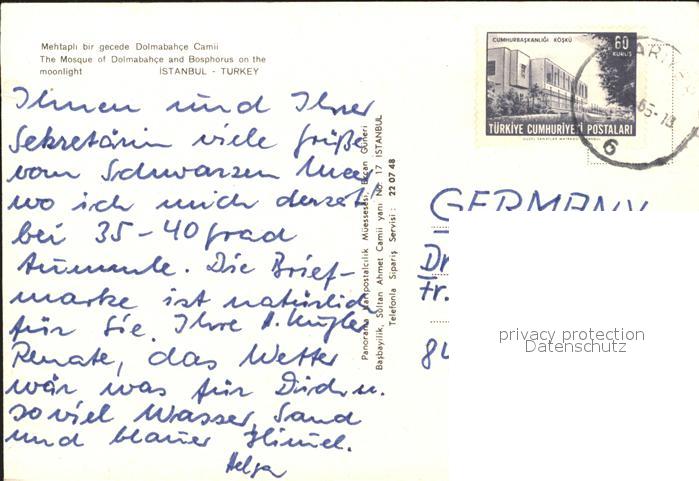 Mehtaplı bir gecede Dolmabahçe Camii
The Mosque of Dolmabahçe and Bosphorus on the
moonlight İSTANBUL - TURKEY
Ihnen und Ihrer
Sekretärin viele Grüße
vom Schwarzen Meer
wo ich mich derzeit
bei 35-40 Grad
tummele. Die Brief-
marke ist natürlich
für Sie. Ihre H. Kugler
Renate, das Wetter
wär was für Dich u.
soviel Wasser, Sand
und blauer Himmel.
Helga
Panorama Kartpostalcılık Müessesesi Ercan Güneri
Başbayilik, Sultan Ahmet Camii yanı No. 17 İSTANBUL
Telefonla Sipariş Servisi : 22 07 48
CUMHURBAŞKANLIĞI KÖŞKÜ
60
KURUŞ
TÜRKİYE CUMHURİYETİ POSTALARI
65-13
6
GERMANY
Dr
Fr.
84
privacy protection
Datenschutz